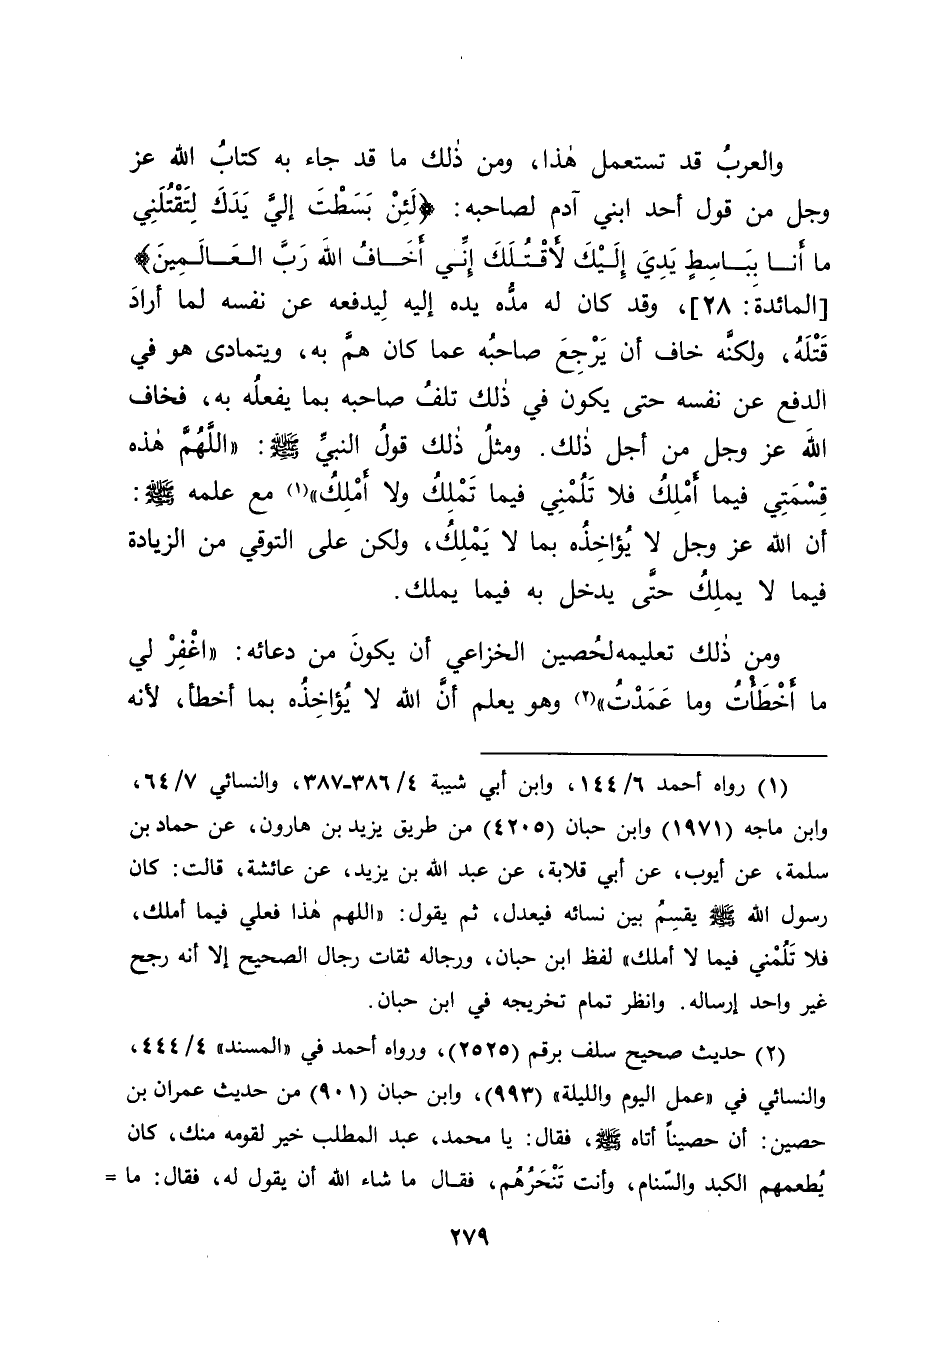 والعربُ قد تستعمل هٰذا، ومن ذٰلك ما قد جاء به كتابُ الله عز
وجل من قول أحد ابني آدم لصاحبه: ﴿لَئِنْ بَسَطْتَ إليَّ يَدَكَ لِتَقْتُلَني
ما أَنا بِبَاسِطٍ يَدِيَ إِلَيْكَ لأَقْتُلَكَ إنِّي أَخَافُ اللهَ رَبَّ العَالَمِينَ﴾
[المائدة: ٢٨]، وقد كان له مدُّه يده إليه لِيدفعه عن نفسه لما أرادَ
قَتْلَهُ، ولكنَّه خاف أن يَرْجِعَ صاحبُه عما كان همَّ به، ويتمادى هو في
الدفع عن نفسه حتى يكون في ذٰلك تلفُ صاحبه بما يفعلُه به، فخاف
اللهَ عز وجل من أجل ذٰلك. ومثلُ ذٰلك قولُ النبيِّ ﷺ: «اللَّهُمَّ هٰذه
قِسْمَتِي فيما أَمْلِكُ فلا تَلُمْنِي فيما تَمْلِكُ ولا أَمْلِكُ»(١) مع علمه ﷺ:
أن الله عز وجل لا يُؤاخِذُه بما لا يَمْلِكُ، ولكن على التوقي من الزيادة
فيما لا يملِكُ حتَّى يدخل به فيما يملك.
ومن ذٰلك تعليمه لحُصين الخزاعي أن يكونَ من دعائه: «اغْفِرْ لي
ما أَخْطَأْتُ وما عَمَدْتُ»(٢) وهو يعلم أنَّ الله لا يُؤاخِذُه بما أخطأ، لأنه
(١) رواه أحمد ٦/١٤٤، وابن أبي شيبة ٤/٣٨٦-٣٨٧، والنسائي ٧/٦٤،
وابن ماجه (١٩٧١) وابن حبان (٤٢٠٥) من طريق يزيد بن هارون، عن حماد بن
سلمة، عن أيوب، عن أبي قلابة، عن عبد الله بن يزيد، عن عائشة، قالت: كان
رسول الله ﷺ يقسِمُ بين نسائه فيعدل، ثم يقول: «اللهم هٰذا فعلي فيما أملك،
فلا تَلُمْني فيما لا أملك» لفظ ابن حبان، ورجاله ثقات رجال الصحيح إلا أنه رجح
غير واحد إرساله. وانظر تمام تخريجه في ابن حبان.
(٢) حديث صحيح سلف برقم (٢٥٢٥)، ورواه أحمد في «المسند» ٤/٤٤٤،
والنسائي في «عمل اليوم والليلة» (٩٩٣)، وابن حبان (٩٠١) من حديث عمران بن
حصين: أن حصيناً أتاه ﷺ، فقال: يا محمد، عبد المطلب خير لقومه منك، كان
يُطعمهم الكبد والسّنام، وأنت تَنْحَرُهُم، فقال ما شاء الله أن يقول له، فقال: ما =
٢٧٩